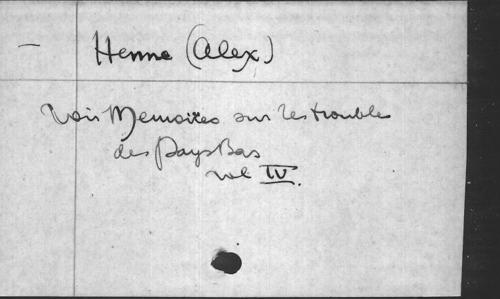 — Henne (Alex)
Voir Memoires sur les troubles
des Pays Bas
vol IV.